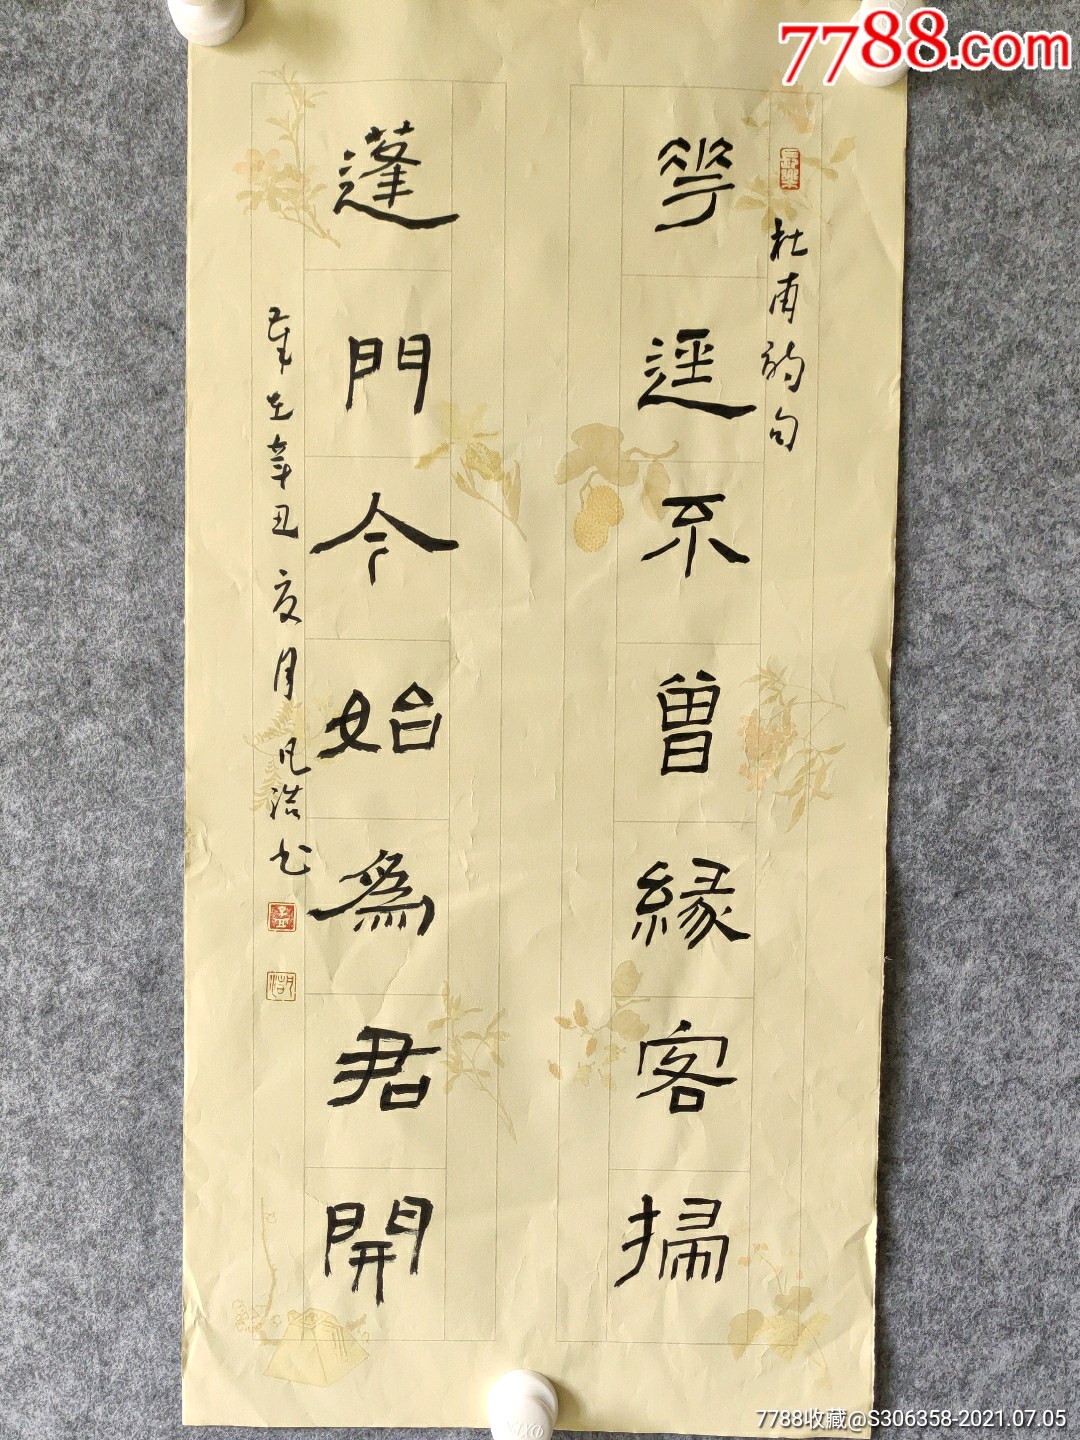 7788.com
杜甫詩句
花逕不曾緣客掃
蓬門今始為君開
歲在辛丑夏月凡浩书
7788收藏@S306358-2021.07.05